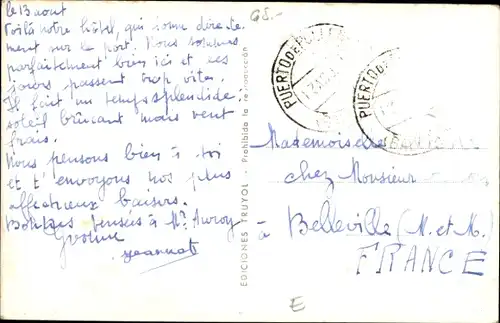 le 13 aout
Voilà notre hôtel, qui donne directe
ment sur le port. Nous sommes
parfaitement bien ici et ces
jours passent trop vite.
Il fait un temps splendide
soleil brûlant mais vent
frais.
Nous pensons bien à toi
et t'envoyons nos plus
affectueux baisers.
Bonnes pensées à Mr Auroy
Yvonne
Jeannot
G8.-
EDICIONES TRUYOL - Prohibida la reproducción
PUERTO DE
PUERTO DE
Mademoiselle
chez Monsieur
à Belleville (M. et M.)
FRANCE
E